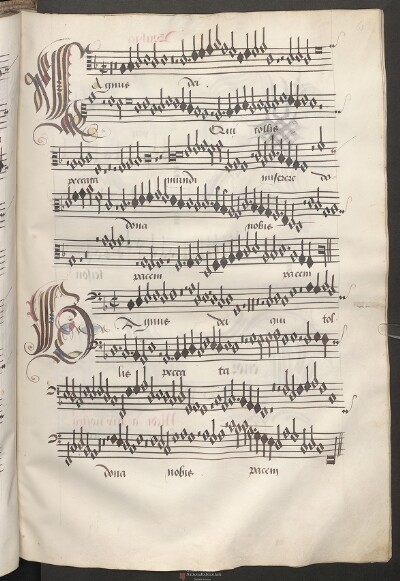 Agnus dei
Qui tollis
peccata mundi miserere
dona nobis
pacem pacem
Agnus dei qui tol
lis pecca ta
dona nobis pacem